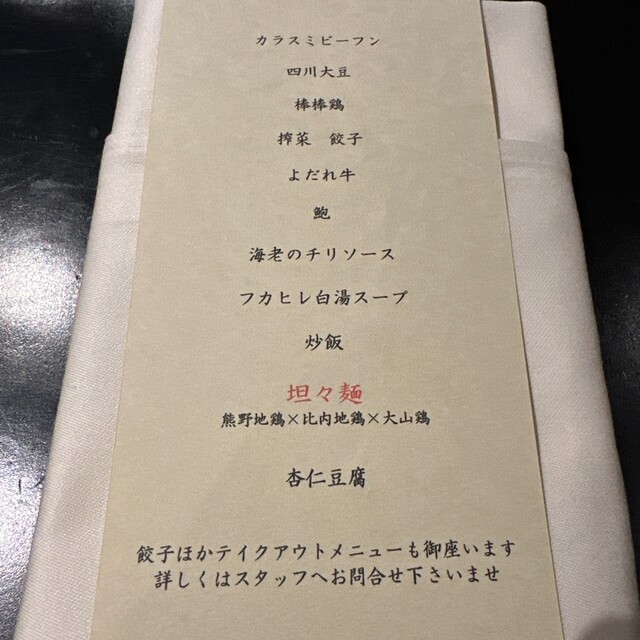 カラスミビーフン
四川大豆
棒棒鶏
搾菜　餃子
よだれ牛
鮑
海老のチリソース
フカヒレ白湯スープ
炒飯
坦々麺
熊野地鶏×比内地鶏×大山鶏
杏仁豆腐
餃子ほかテイクアウトメニューも御座います
詳しくはスタッフへお問合せ下さいませ